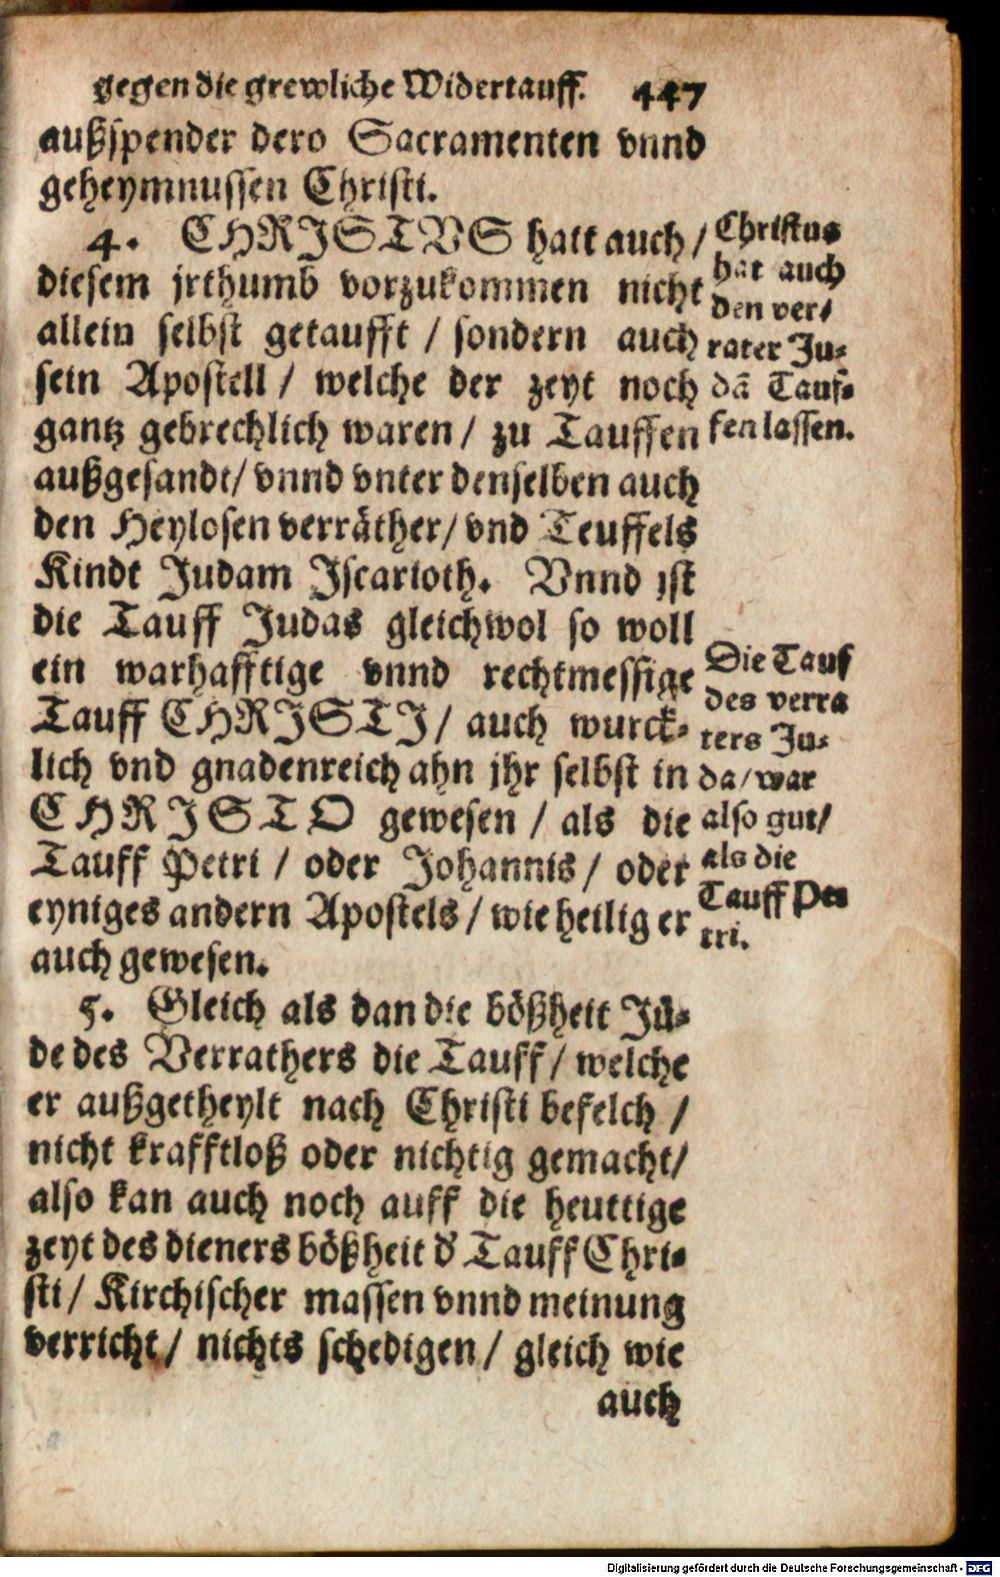 gegen die grewliche Widertauff. 447
außspender dero Sacramenten vnnd
geheymnussen Christi.
4. CHRISTVS hatt auch /
diesem jrthumb vorzukommen nicht
allein selbst getaufft / sondern auch
sein Apostell / welche der zeyt noch
gantz gebrechlich waren / zu Tauffen
außgesandt / vnnd vnter denselben auch
den Heylosen verräther / vnd Teuffels
Kindt Judam Jscarioth. Vnnd ist
die Tauff Judas gleichwol so woll
ein warhafftige vnnd rechtmessige
Tauff CHRJSTJ / auch wurck-
lich vnd gnadenreich ahn jhr selbst in
CHRJSTO gewesen / als die
Tauff Petri / oder Johannis / oder
eyniges andern Apostels / wie heilig er
auch gewesen.
5. Gleich als dan die bößheit Jü-
de des Verrathers die Tauff / welche
er außgetheylt nach Christi befelch /
nicht krafftloß oder nichtig gemacht /
also kan auch noch auff die heuttige
zeyt des dieners bößheit d' Tauff Chri-
sti / Kirchischer massen vnnd meinung
verricht / nichts schedigen / gleich wie
auch
Christus
hat auch
den ver/
rater Ju-
dã Tauf-
fen lassen.
Die Tauf
des verra
ters Ju-
da / war
also gut /
als die
Tauff Pe-
tri.
Digitalisierung gefördert durch die Deutsche Forschungsgemeinschaft - DFG